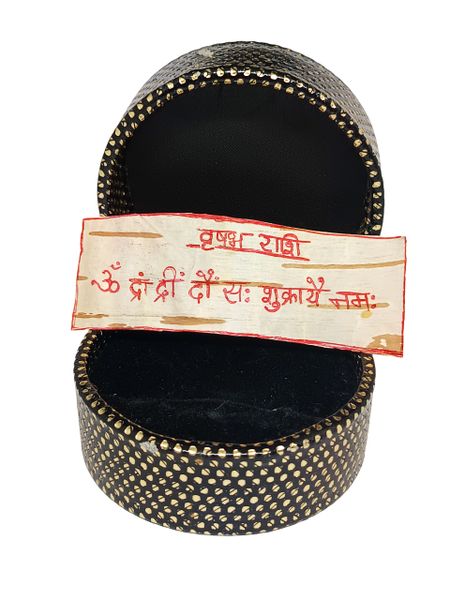 वृषभ राशि
ॐ द्रां द्रीं दौं सः शुक्रायै नमः